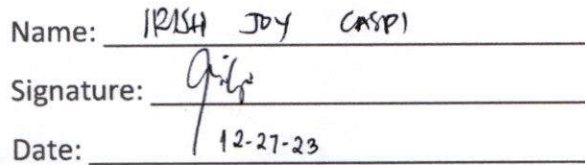 Name: IRISH JOY CASPI
Signature:
Date: 12-27-23